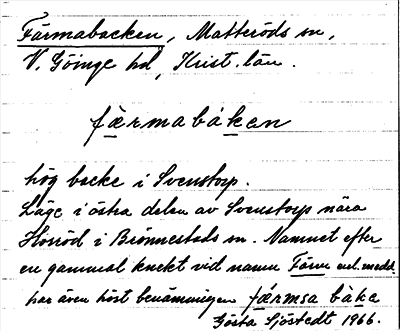 Färmabacken, Matteröds sn,
V. Göinge hd, Krist. län.
färmabåken
hög backe i Svenstorp.
Läge i östra delen av Svenstorp nära
Horröd i Brönnestads sn. Namnet efter
en gammal knekt vid namn Färm enl. medd.
har även hört benämningen färmsa båka
Gösta Sjöstedt 1966.